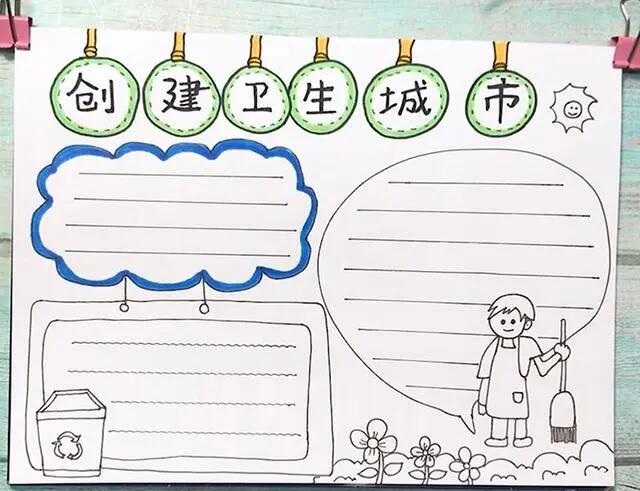 创建卫生城市